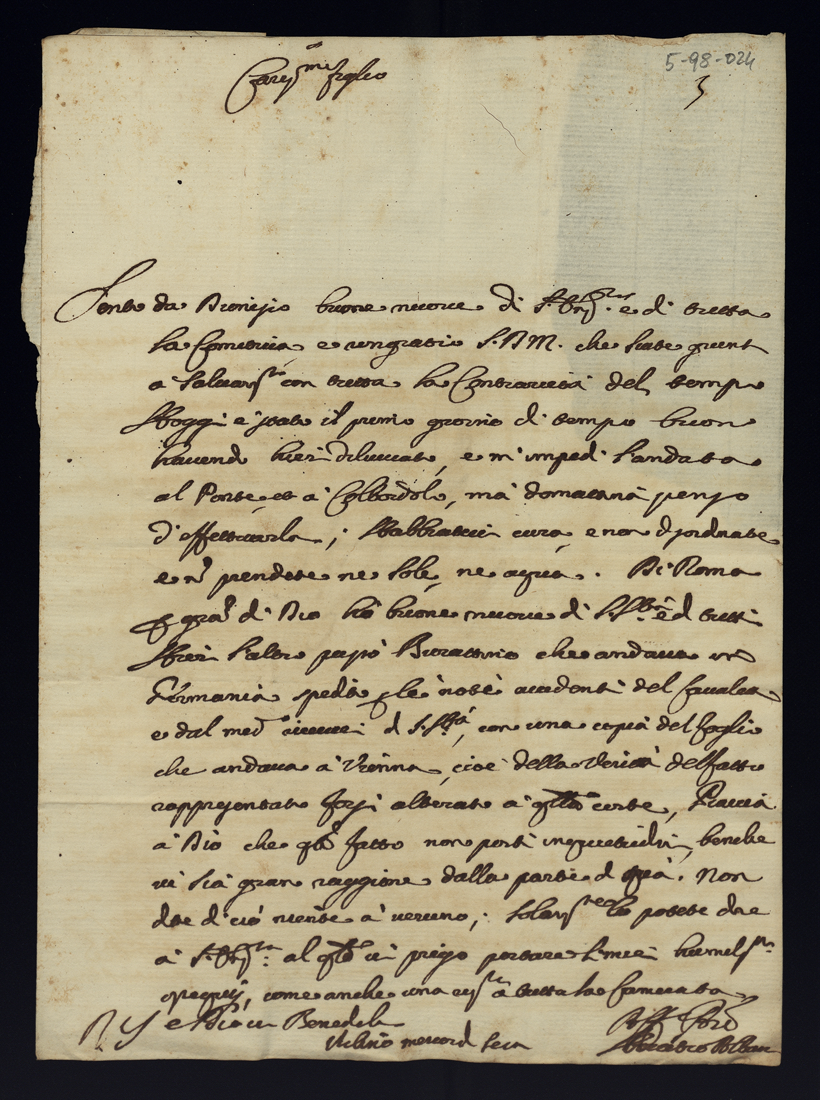 5-98-024
3
Cariss.mo figlio
Sento da Dionigio buone nuove di S. e di tutta
la Comitiva e ringratio S.D.M. che siate giunti
a salvam.to con tutta la Contrarietà del tempo
Hoggi è stato il primo giorno di tempo buono
havendo hieri diluviato, e m'impedì l'andata
al Ponte, et a Colbordolo, mà domattina penso
d'effettuarla; Habbiatevi cura, e non disordinate
e nõ prendete ne sole, ne acqua. Di Roma
gra di Dio hò buone nuove di S. S.tà e di tutti
Hieri l'altro passò che andava in
Germania spedito p le note accidenti del
e dal med.o di S. S.tà, con una copia del foglio
che andava à Vienna, cioè della Verità del fatto
rappresentato forsi alterato à corte, Piaccia
à Dio che q.to fatto non porti inquietudini, benche
vi sia gran raggione dalla parte di quà. Non
dite di ciò niente à veruno; solam.te lo potete dire
à S. al vi prego portare l miei humiliss.mi
ossequij, come anche una à tutta la Camerata
e Dio vi Benedica
Urbino mercordi sera
Aff.
Horatio Albani